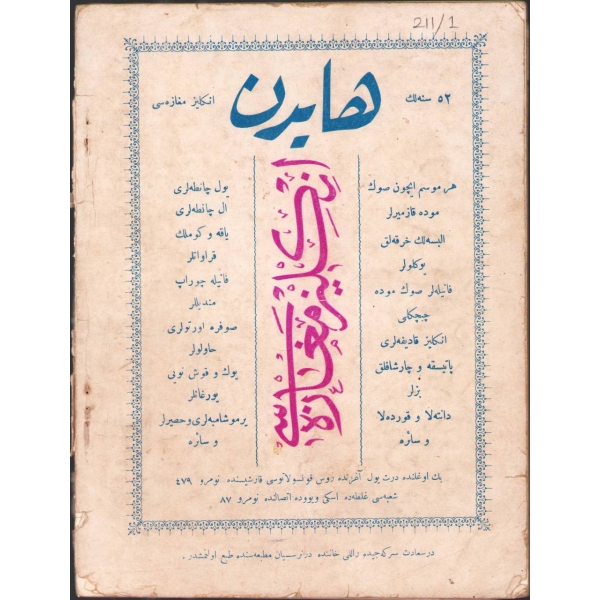 211/1
٥٢ سنه‌لك هایدن انكلیز مغازه‌سی
انكلیز مغازه‌سی
هر موسم ایچون صوك
موده قازمیرلر
البسه‌لك خرقه‌لق
یوكلولر
فانیله‌لر صوك موده
چیچكلی
انكلیز قادیفه‌لری
پاتیسقه و چارشافلق
بزلر
دانته‌لا و قورده‌لا
و سائره
یول چانطه‌لری
ال چانطه‌لری
یاقه و كوملك
قراواتلر
فانیله چوراپ
مندیللر
صوفره اورتولری
حاولولر
یوك و قوش تویی
یورغانلر
یر موشامبه‌لری و حصیرلر
و سائره
بك اوغلنده درت یول آغزنده روس قونسولاتوسی قارشیسنده نومرو ٤٧٩
شعبه‌سی غلطه‌ده اسكی ویووده اتصالنده نومرو ٨٧
درسعادت سركه‌جیده راللی خاننده درنرسسیان مطبعه‌سنده طبع اولنمشدر .